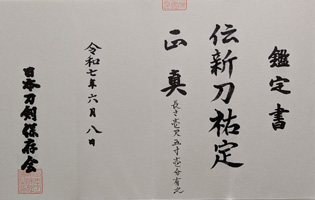 鑑定書
伝新刀祐定
正真
長さ壱尺五寸壱分有之
令和七年六月八日
日本刀剣保存会